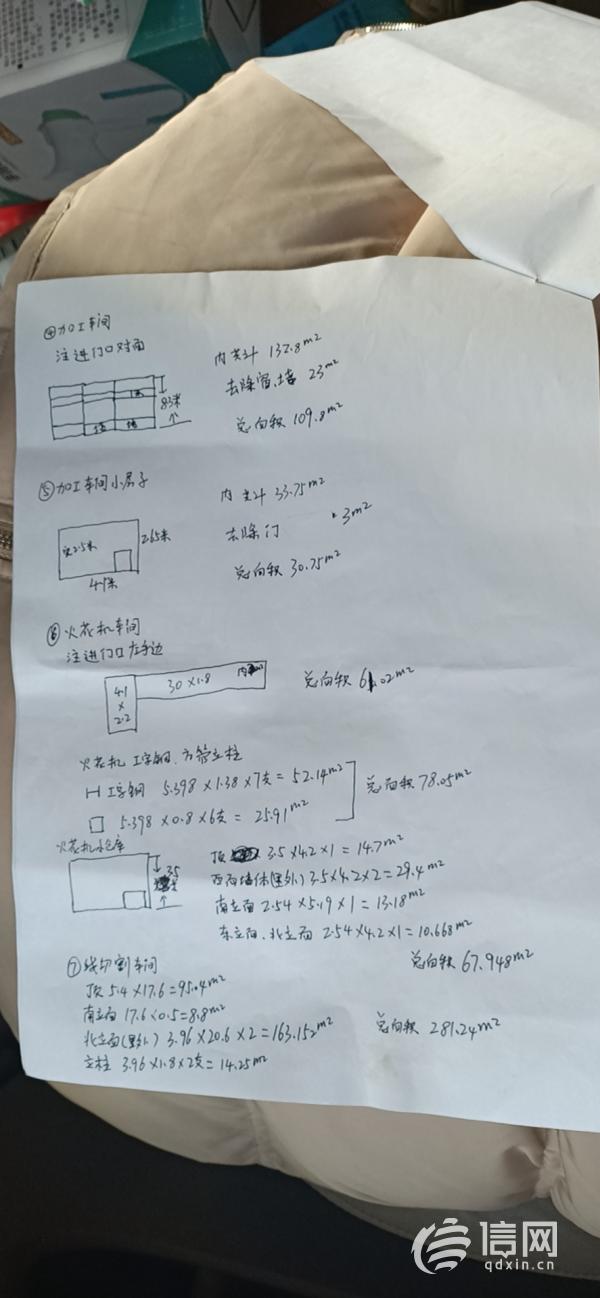 ④加工车间
注进门口对面
内共计 132.8m²
去除窗.墙 23m²
总面积 109.8m²
8.3米
⑤加工车间小房子
内共计 33.75m²
去除门 3m²
总面积 30.75m²
宽2.5米
2.65米
4.9米
⑥火花机车间
注进门口左手边
30×1.8
4.1
×
2.2
总面积 61.02m²
火花机 工字钢、方管立柱
H 工字钢 5.398×1.38×7支=52.14m²
5.398×0.8×6支=25.91m²
总面积 78.05m²
火花机小仓库
3.5
顶 3.5×4.2×1=14.7m²
西面墙体(里外) 3.5×4.2×2=29.4m²
南立面 2.54×5.19×1=13.18m²
东立面、北立面 2.54×4.2×1=10.668m²
总面积 67.948m²
⑦线切割车间
顶 5.4×17.6=95.04m²
南立面 17.6×0.5=8.8m²
北立面(里外) 3.96×20.6×2=163.152m²
立柱 3.96×1.8×2支=14.25m²
总面积 281.24m²
信网
qdxin.cn